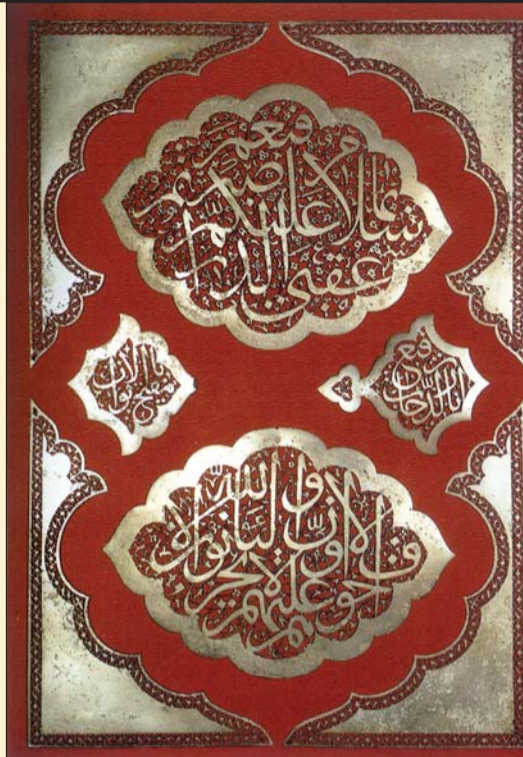 سلام عليكم بما صبرتم فنعم عقبى الدار
الدرجات
يا مفتح الابواب
الا ان اولياء الله لا خوف عليهم ولا هم يحزنون